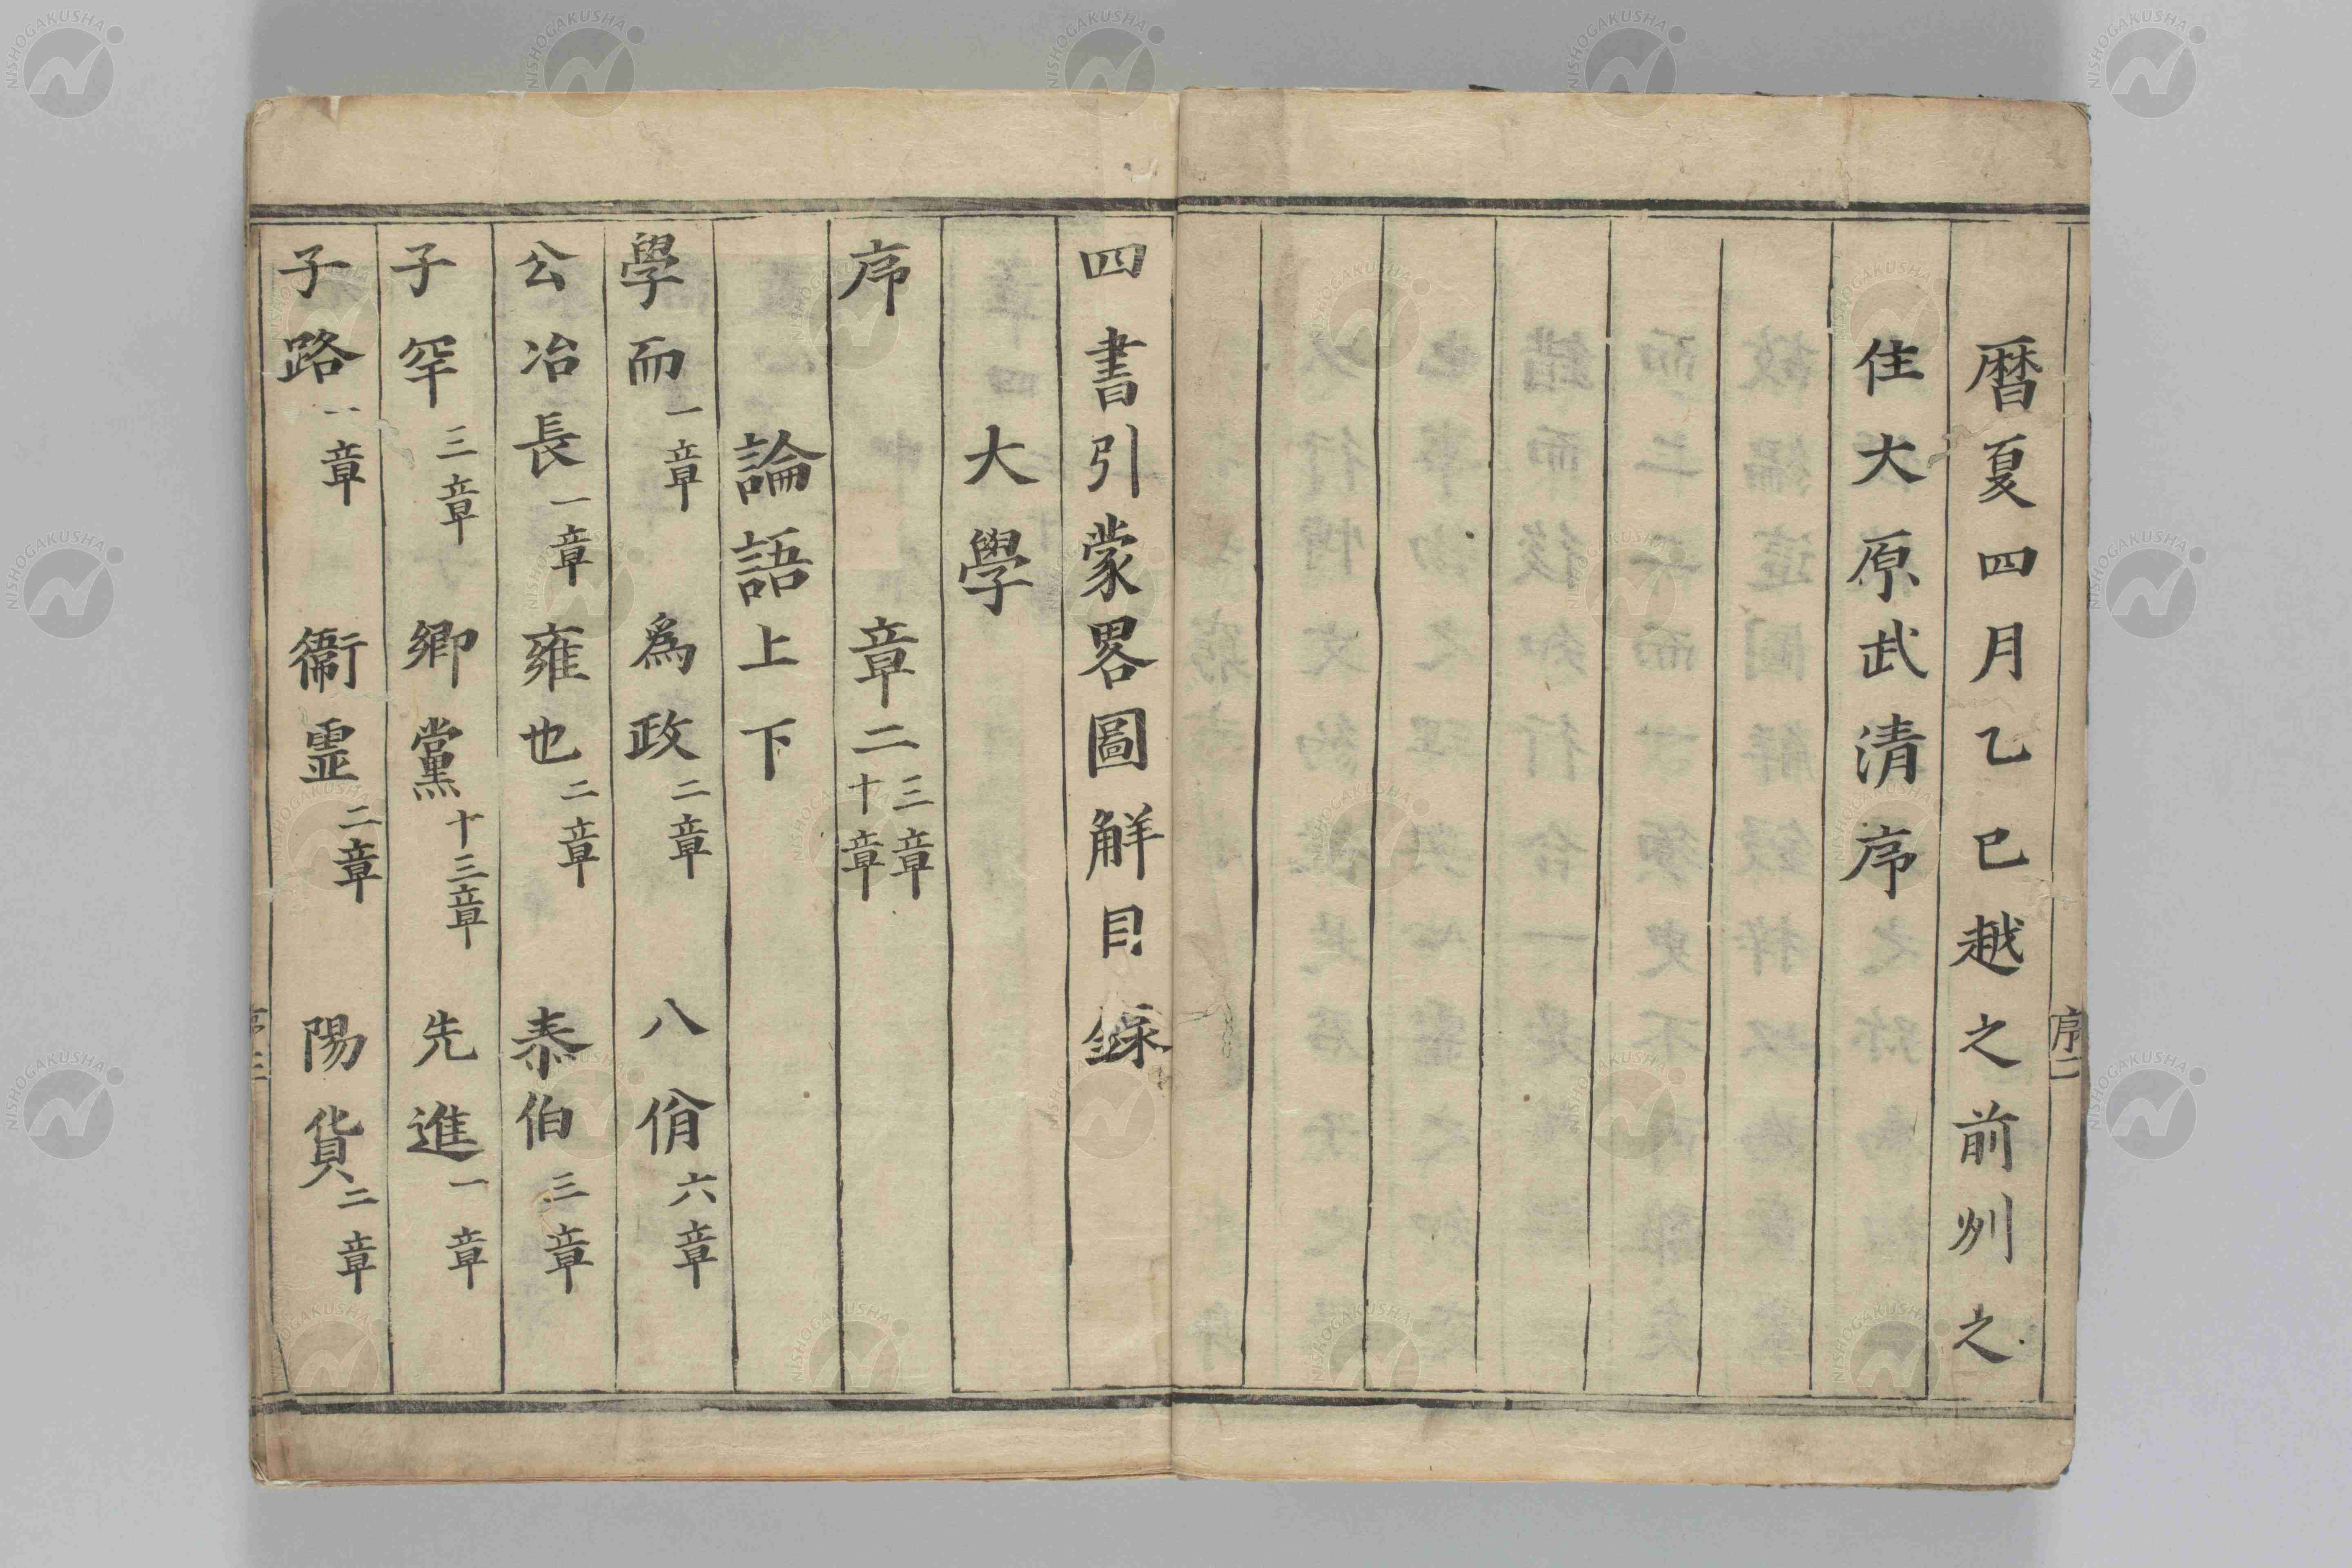 曆夏四月乙巳越之前州之
住大原武清序
序二
四書引蒙畧圖解目錄
大學
序 章二 三章 十章
論語上下
學而 一章 爲政 二章 八佾 六章
公冶長 一章 雍也 二章 泰伯 三章
子罕 三章 鄉黨 十三章 先進 一章
子路 一章 衞靈 二章 陽貨 二章
NISHOGAKUSHA